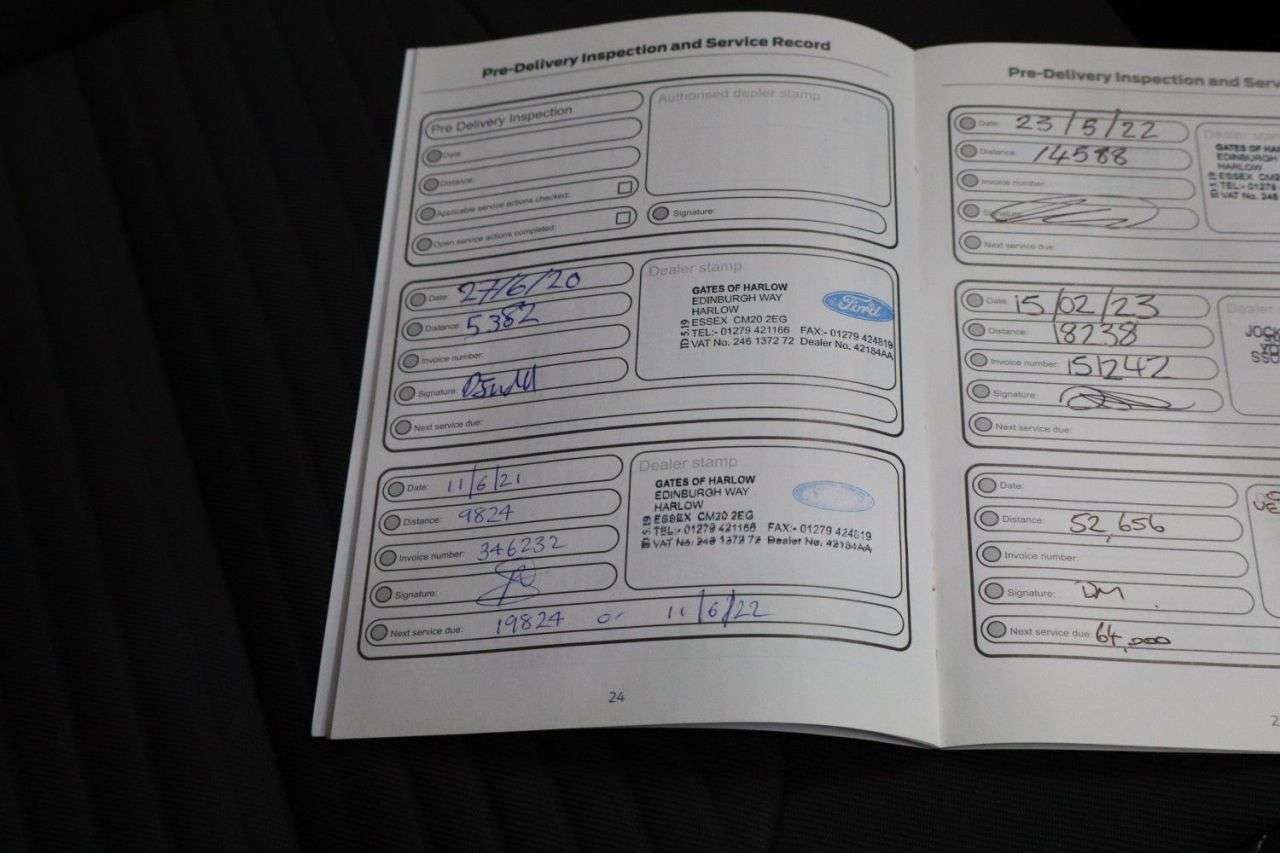 Pre-Delivery Inspection and Service Record
Pre Delivery Inspection
Date:
Distance:
Applicable service actions checked:
Open service actions completed:
Authorised dealer stamp
Signature:
Date: 27/6/20
Distance: 5382
Invoice number:
Signature:
Next service due:
Dealer stamp
GATES OF HARLOW
EDINBURGH WAY
HARLOW
ESSEX CM20 2EG
TEL:- 01279 421166 FAX:- 01279 424819
VAT No. 246 1372 72 Dealer No. 42184AA
ID 5.19
Ford
Date: 11/6/21
Distance: 9824
Invoice number: 346232
Signature:
Next service due: 19824 or 11/6/22
Dealer stamp
GATES OF HARLOW
EDINBURGH WAY
HARLOW
ESSEX CM20 2EG
TEL:- 01279 421166 FAX:- 01279 424819
VAT No. 246 1372 72 Dealer No. 42184AA
24
Pre-Delivery Inspection and Serv
Date: 23/5/22
Distance: 14588
Invoice number:
Signature:
Next service due:
Dealer stamp
GATES OF HAR
EDINBURGH
HARLOW
ESSEX CM2
TEL:- 01279
VAT No. 246
Date: 15/02/23
Distance: 18238
Invoice number: 151247
Signature:
Next service due:
Dealer
Date:
Distance: 52,656
Invoice number:
Signature: DM
Next service due: 64,000
2